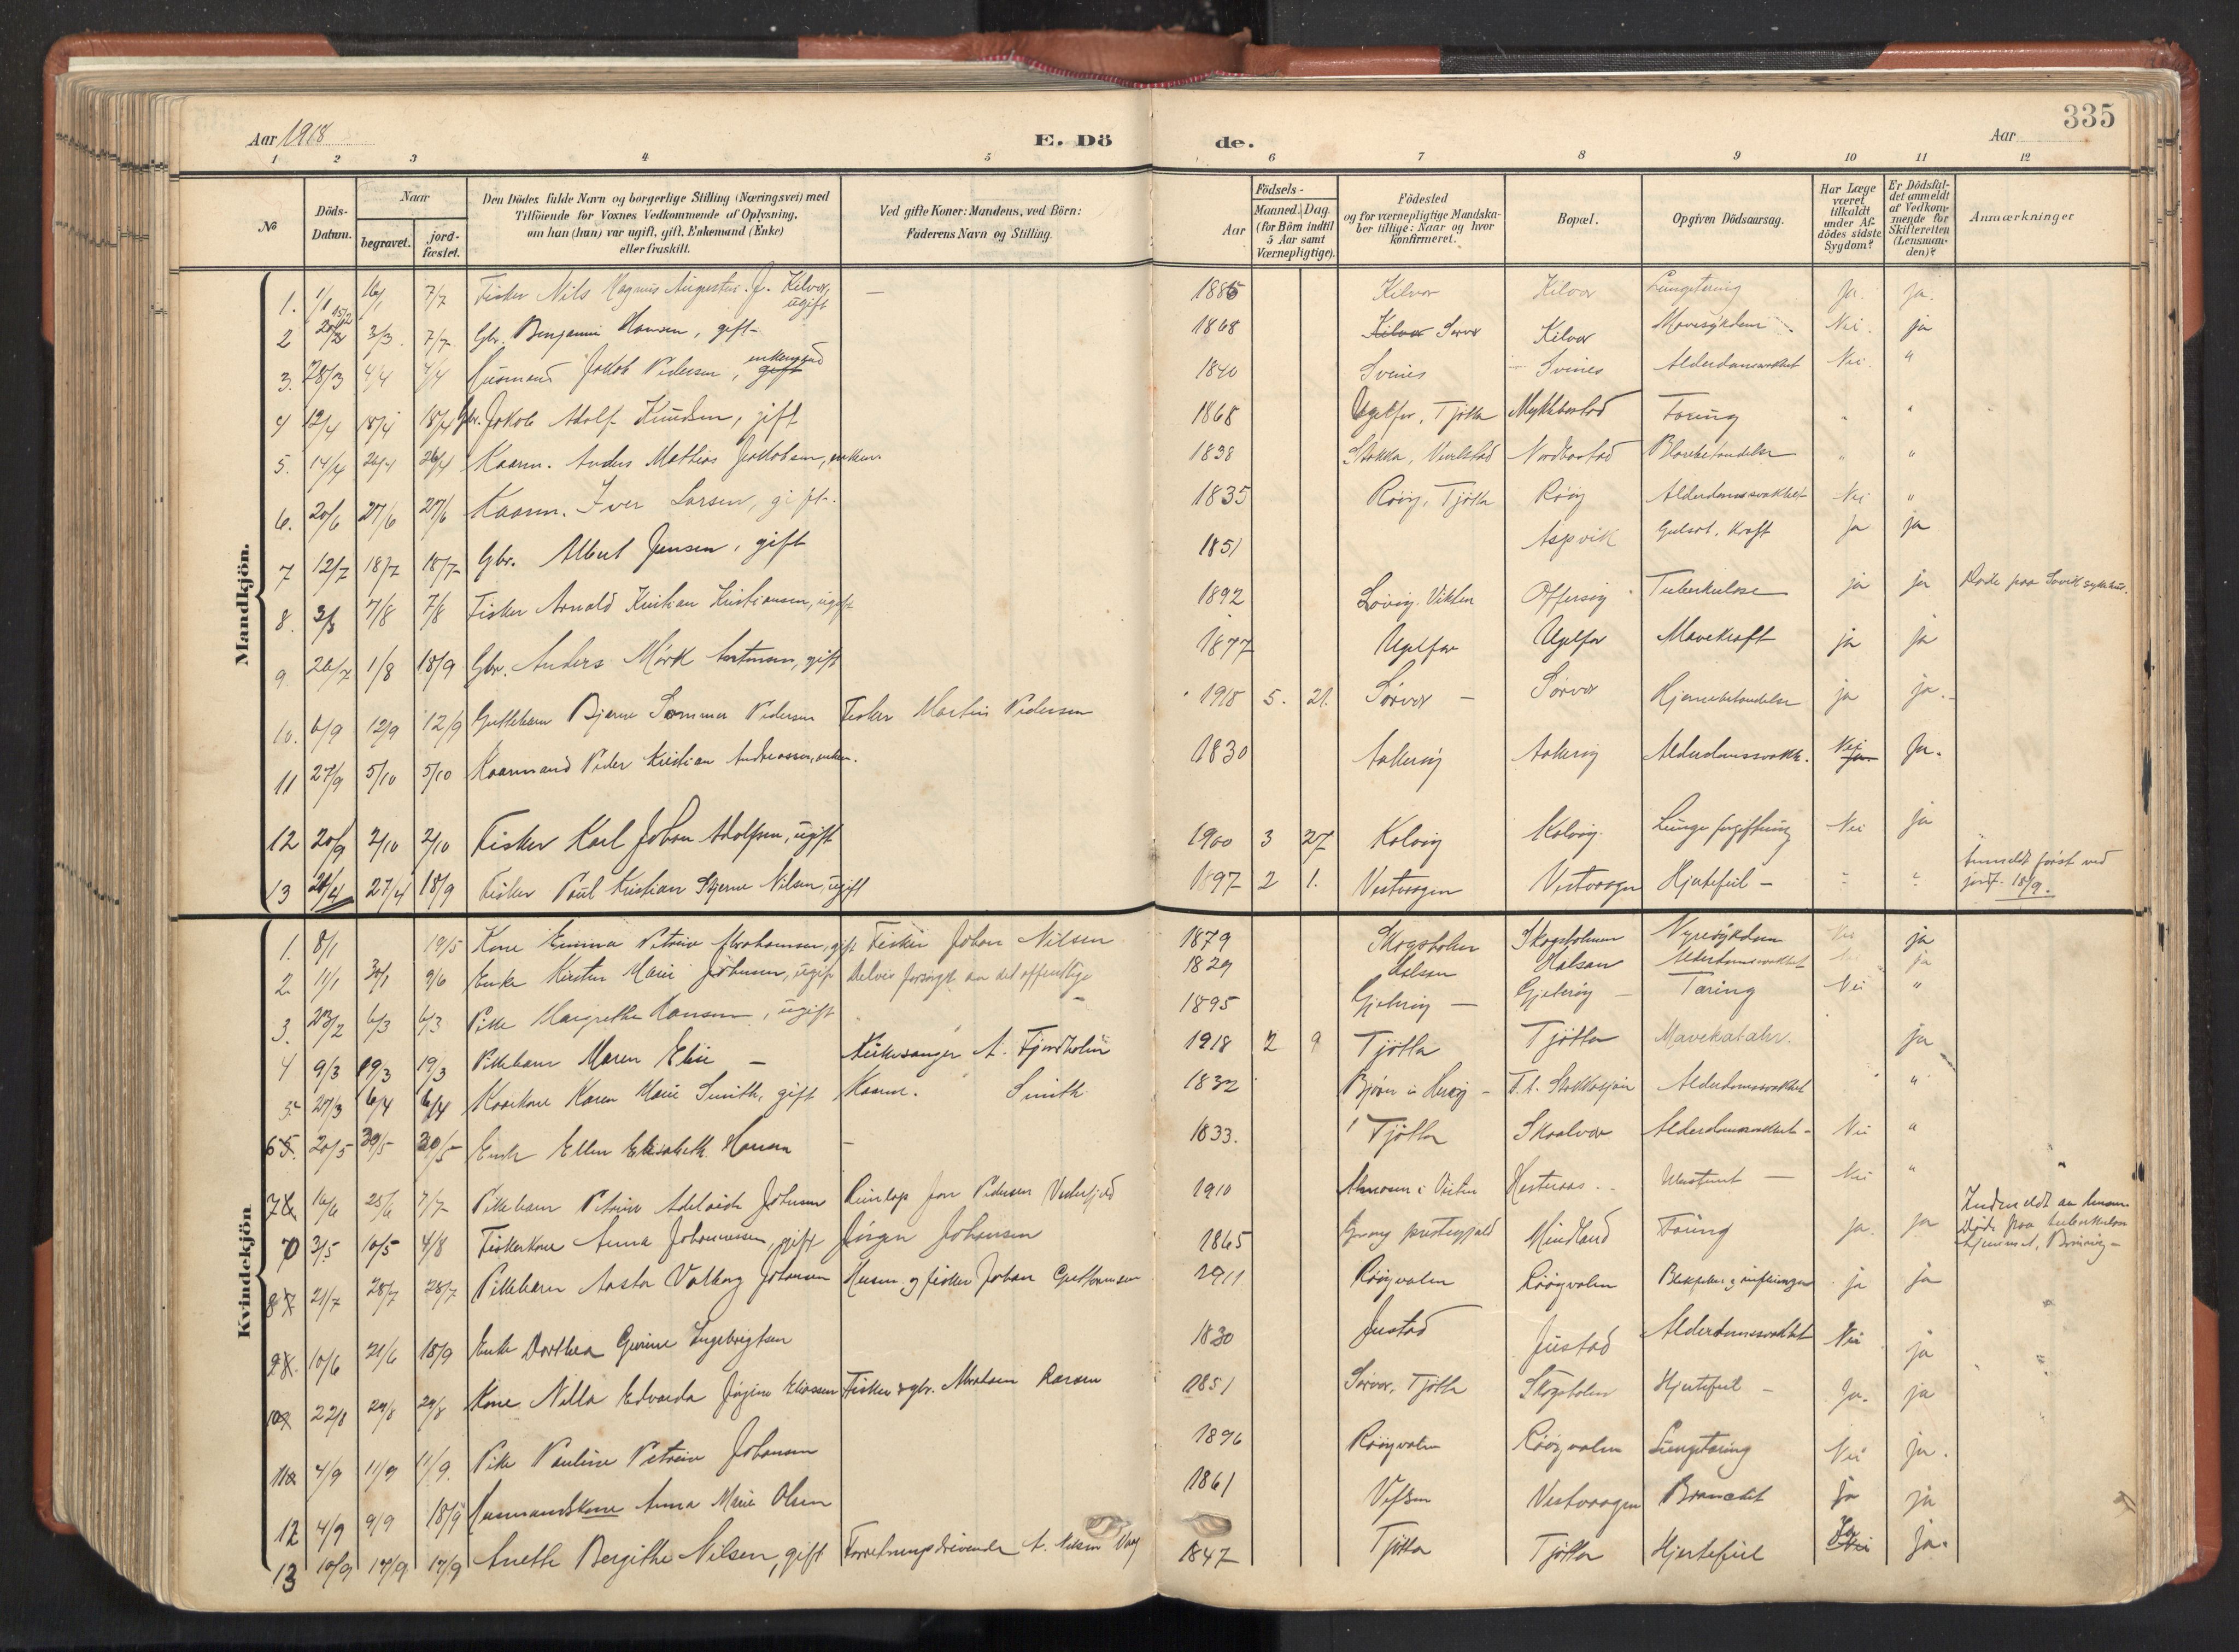 335
Aar 1918
E. Dö
de.
Aar
1 2 3 4 5 6 7 8 9 10 11 12
№
Döds-Datum.
Naar
begravet.
jord-fæstet.
Den Dödes fulde Navn og borgerlige Stilling (Næringsvei) med
Tilföiende for Voxnes Vedkommende af Oplysning,
om han (hun) var ugift, gift, Enkemand (Enke)
eller fraskilt.
Ved gifte Koner: Mandens, ved Börn:
Faderens Navn og Stilling.
Födsels-
Aar
Maaned. Dag.
(for Börn indtil
5 Aar samt
Værnepligtige).
Födested
og for værnepligtige Mandska-
ber tillige: Naar og hvor
konfirmeret.
Bopæl.
Opgiven Dödsaarsag.
Har Læge
været
tilkaldt
under Af-
dödes sidste
Sygdom?
Er Dödsfal-
det anmeldt
af Vedkom-
mende for
Skifteretten
(Lensman-
den)?
Anmærkninger
Mandkjön.
1. 1/1 16/1 7/7 Fisker Nils Magnus Augustus J. Kilvær, ugift — 1885 Kilvær Kilvær Lungetæring Ja. ja.
2 20/2 15/2 3/3 7/7 Gbr. Benjamin Hansen, gift 1868 Kilvær Sørvær Kilvær Mavesykdom Nei. ja
3. 28/3 4/4 4/4 Husmand Jakob Pedersen, gift enkemand 1840 Svines Svines Alderdomssvakhet Nei "
4 12/4 18/4 18/4 Gbr. Jakob Adolf Knudsen, gift 1868 Ugelfar, Tjötta Mykklebostad Tæring " "
5. 14/4 26/4 26/4 Kaarm. Anders Mathias Jakobsen, enkem. 1838 Stokka, Nordbostad Blærebetændelse " "
6. 20/6 27/6 27/6 Kaarm. Iver Larsen, gift. 1835 Röög, Tjötta Röög Alderdomssvakhet Nei "
7 12/7 18/7 18/7 Gbr. Albert Jensen, gift 1851 Aspvik Gulsot, Kræft Ja ja
8. 3/8 7/8 7/8 Fisker Arnold Kristian Kristiansen, ugift 1892 Lövig. Vikten Offersöy Tuberkulose ja ja Döde paa Sandvik sykehus.
9. 26/7 1/8 18/9 Gbr. Anders Mörk Antonsen, gift 1877 Ugelfar Ugelfar Mavekræft ja ja
10. 6/9 12/9 12/9 Guttebarn Bjarne Sommer Pedersen Fisker Martin Pedersen 1918 5. 21. Sörvær — Sörvær Hjernebetændelse ja ja.
11 27/9 5/10 5/10 Kaarmand Peder Kristian Andreassen, enkem. 1830 Aakerøy Aakerøy Alderdomssvakh. Nei ja Ja.
12 20/9 2/10 2/10 Fisker Karl Johan Adolfsen, ugift 1900 3 27 Kalvöy Kalvöy. Lunge forgiftning Nei ja
13 21/4 27/4 18/9 Fisker Paul Kristian Stjerne Nilsen, ugift 1897 2 1. Vestvaagen Vestvaagen Hjertefeil — " " Anmeldt först ved
jordf. 18/9.
Kvindekjön
1. 8/1 19/5 Kone Emma Petrine Abrahamsen, gift Fisker Johan Nilsen 1879 Skogsholm Skogsholmen Nyresykdom Nei ja
2. 11/1 30/1 9/6 Enke Kirsten Marie Johnsen, ugift delvis forsørget av det offentlige 1829 Halsan Halsan Alderdomssvakhet Nei ja
3. 23/2 6/3 6/3 Pike Margrethe Hansen, ugift — 1895 Gjeterøy — Gjeterøy — Tæring Nei "
4 9/3 19/3 19/3 Pikebarn Maren Elise — Kirkesanger A. Fjordholm 1918 2 9 Tjötta Tjötta Mavekatahr. ja
5. 27/3 6/4 6/4 Kaarkone Karen Marie Smith, gift Kaarm. Smith 1832 Bjørn i Herøy — Alderdomssvakhet " "
6 5. 20/5 30/5 30/5 Enke Ellen Elisabeth Hansen — 1833. Tjötta Skaalvær Alderdomssvakhet — Nei "
7 6 16/6 25/6 7/7 Pikebarn Petrine Adelaide Johnsen 1910 Hesteraas Nei "
7 3/5 10/5 4/8 Fiskerkone Anna Johannessen, gift Jörgen Johansen 1865 Grong prestegjeld Mindland Tæring ja. ja Indmeldt av lensm.
Död paa tuberkulose
hjemmet, Brönnöy —
8 7 21/7 28/7 28/7 Pikebarn Aasta Valborg Johansen Husm. og fisker Johan 1911 Röögvalen Röögvalen ja ja
9 8. 10/6 21/6 18/9 Enke Dorthea Gurine Ingebrigtsen 1830 Justad Justad Alderdomssvakhet Nei ja
10 22/8 29/8 29/8 Kone Nilla Edvarda Jörgine Eliassen Fisker & gbr. Abraham Larsen 1851 Sörvær, Tjötta Skogsholm Hjertefeil — Ja. ja
11 4/9 11/9 11/9. Pike Pauline Petrine Johansen 1896 Röögvalen Röögvalen Lungetæring Nei ja.
12 4/9 9/9 18/9 Husmandskone Anna Marie Olsen 1861 Vefsen Vestvaagen Ja ja
13 10/9 17/9 17/9 Anette Bergitte Nilsen, gift Forretningsdrivende A. Nilsen 1847 Tjötta Tjötta Hjertefeil Ja Nei Ja.